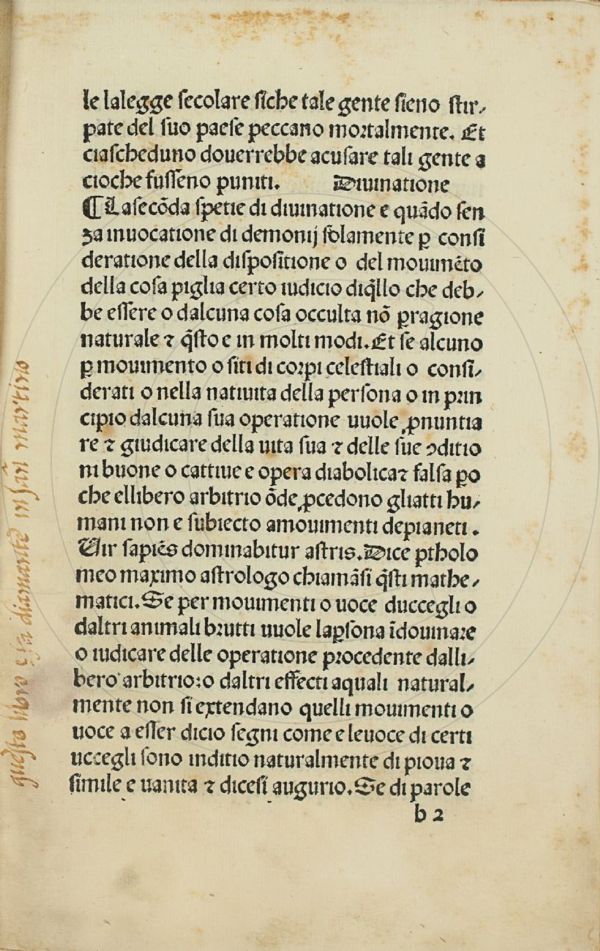 le lalegge secolare siche tale gente sieno stir-
pate del suo paese peccano mortalmente. Et
ciascheduno douerrebbe acusare tali gente a
cioche fusseno puniti. Diuinatione
¶ Lasecōda spetie di diuinatione e quādo sen
za inuocatione di demonij solamente ꝑ consi
deratione della dispositione o del mouimēto
della cosa piglia certo iudicio diq̄llo che deb-
be essere o dalcuna cosa occulta nō ꝑragione
naturale ⁊ q̄sto e in molti modi. Et se alcuno
ꝑ mouimento o siti di corpi celestiali o consi-
derati o nella natiuita della persona o in prin
cipio dalcuna sua operatione uuole ꝓnuntia
re ⁊ giudicare della uita sua ⁊ delle sue ꝯditio
ni buone o cattiue e opera diabolica⁊ falsa ꝑo
che ellibero arbitrio ōde ꝓcedono gliatti hu-
mani non e subiecto amouimenti depianeti.
Uir sapiēs dominabitur astris. Dice ptholo
meo maximo astrologo chiamāsi q̄sti mathe-
matici. Se per mouimenti o uoce duccegli o
daltri animali brutti uuole laꝑsona īdouinare
o iudicare delle operatione procedente dalli-
bero arbitrio: o daltri effecti aquali natural-
mente non si extendano quelli mouimenti o
uoce a esser dicio segni come e leuoce di certi
uccegli sono inditio naturalmente di pioua ⁊
simile e uanita ⁊ dicesi augurio. Se di parole
b 2
questo libro è di diamante in san martino